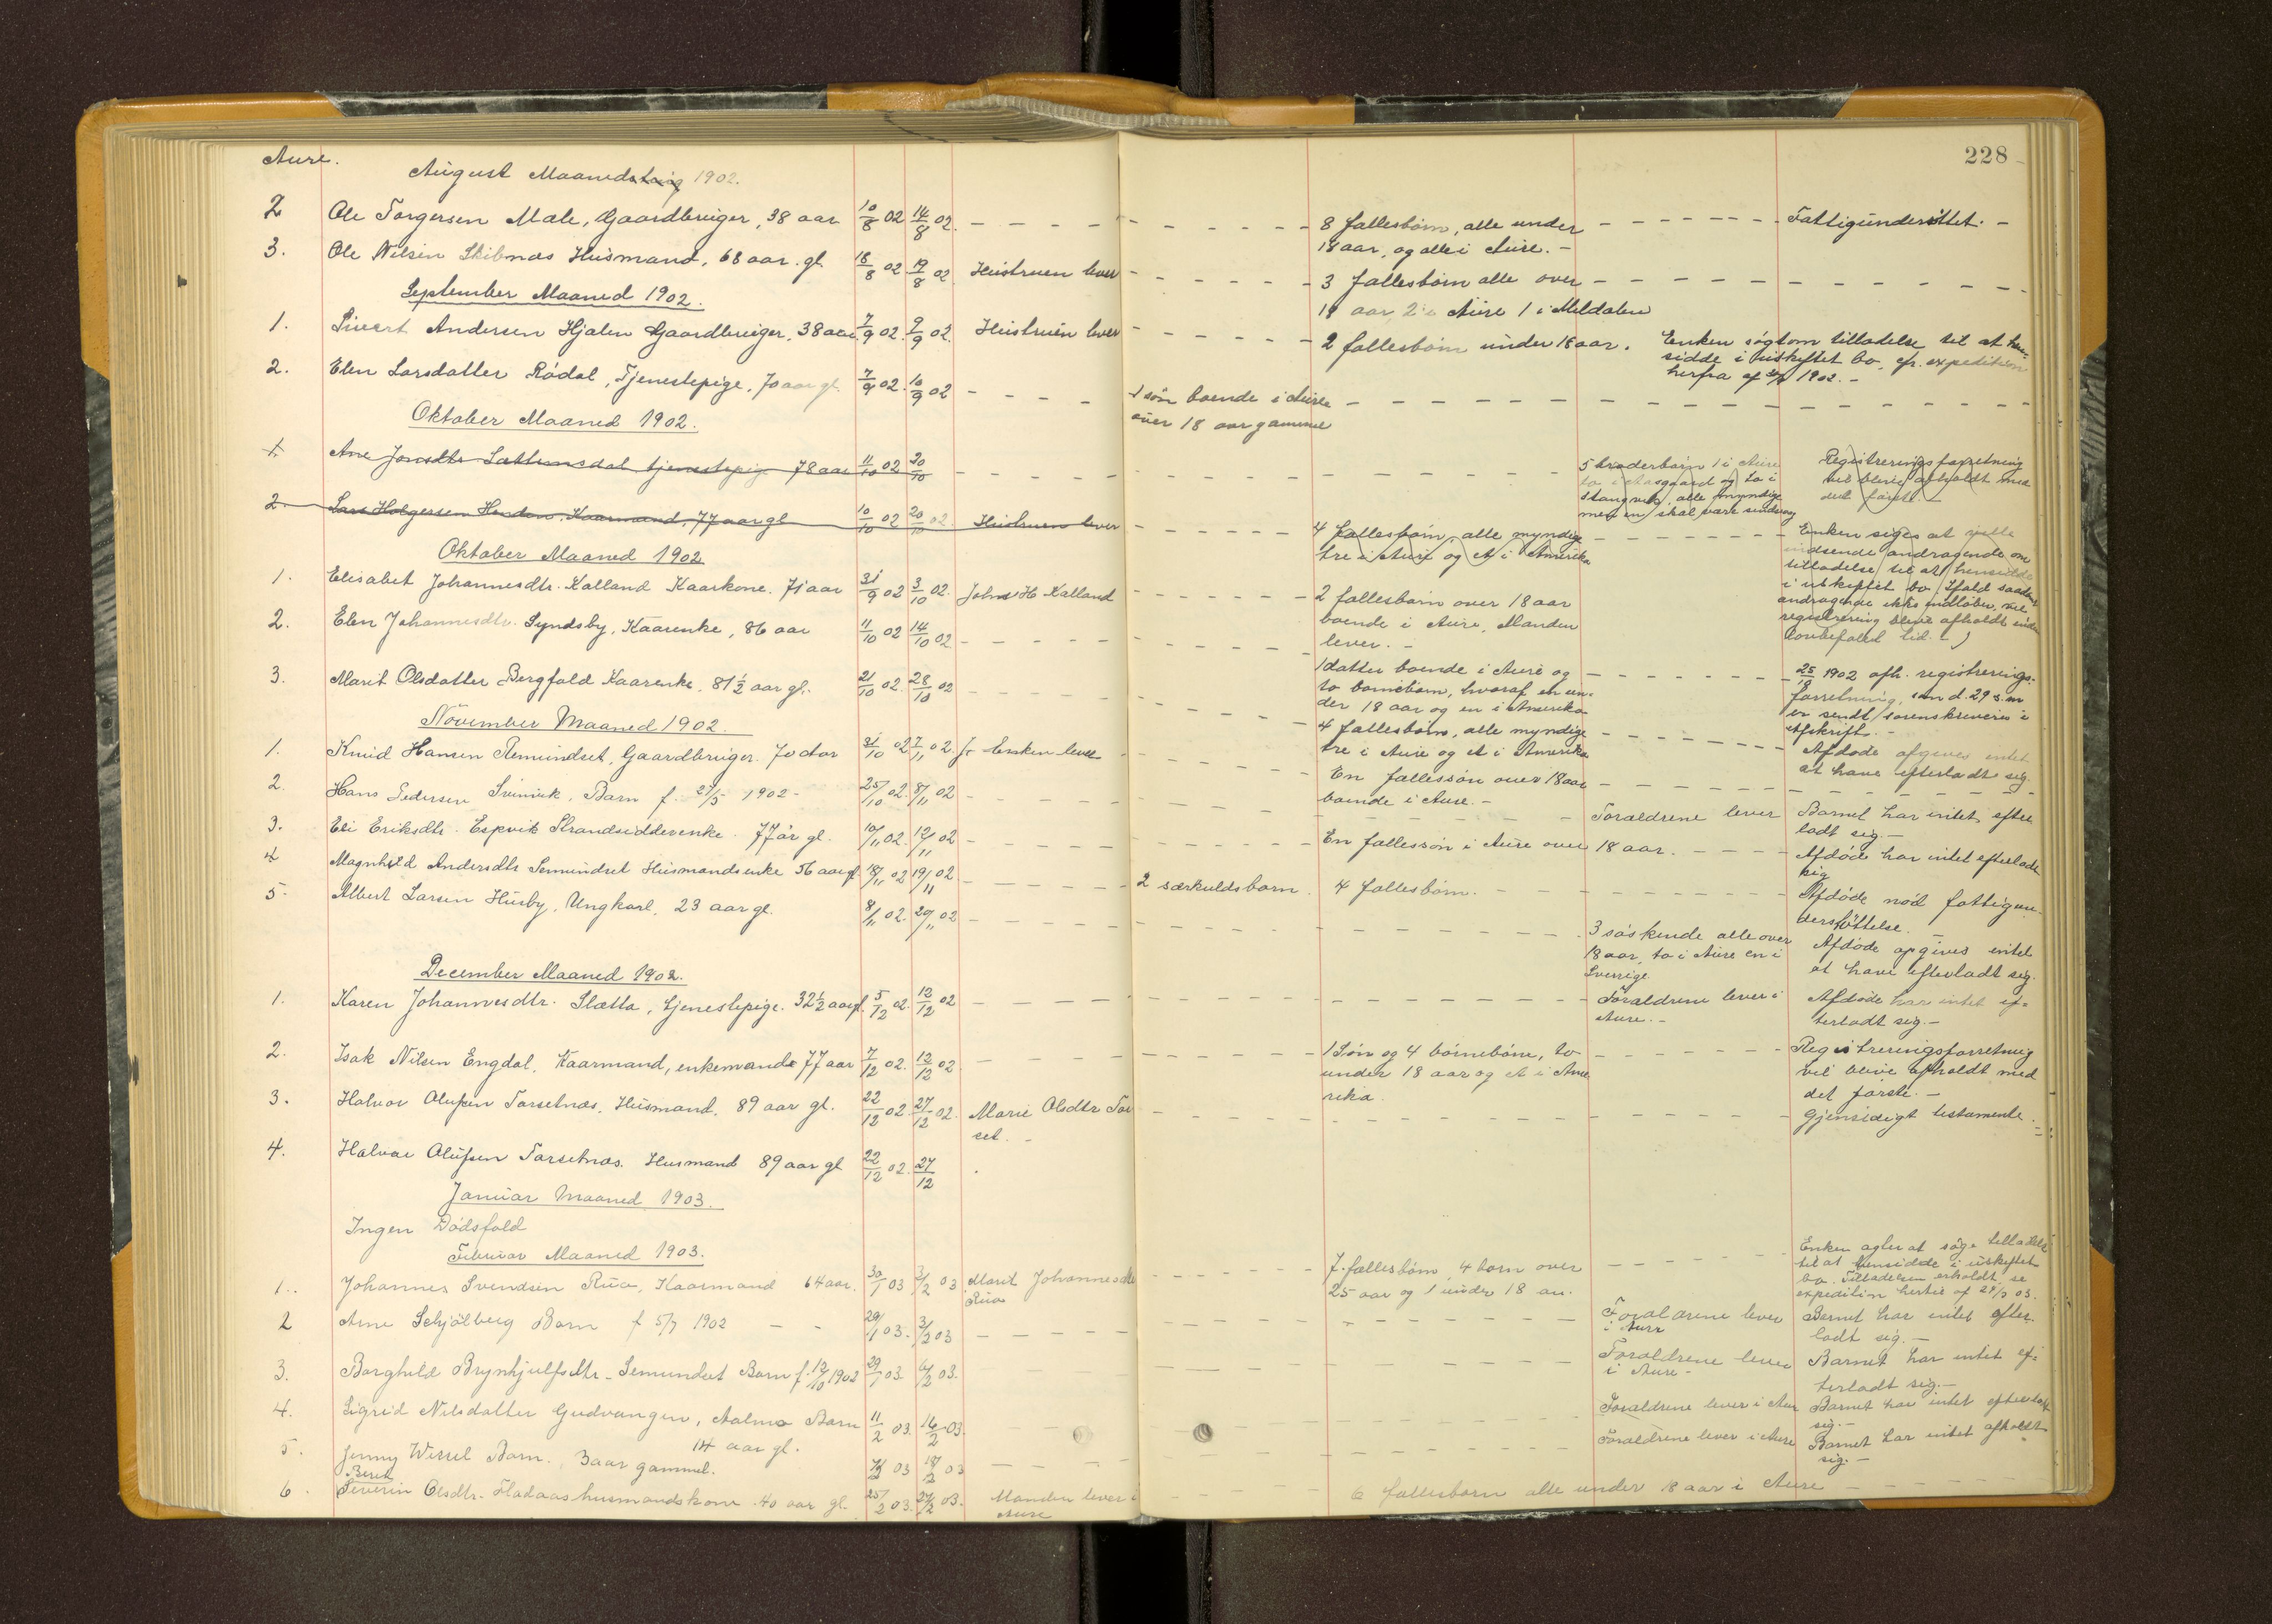 228
Aure.
August Maaned 1902.
2 Ole Torgersen Male, Gaardbruger, 38 aar 10/8 02 14/8 02. 8 fællesbørn, alle under Fattigunderstøttet.
18 aar, og alle i Aure.
3. Ole Nilsen Skibnæs Husmand, 68 aar gl. 18/8 02 19/8 02 Hustruen lever 3 fællesbørn alle over
18 aar 2 i Aure 1 i Meldalen
September Maaned 1902.
1. Sivert Andersen Hjalen Gaardbruger, 38 aar 7/9 02. 9/9 02. Hustruen lever 2 fællesbørn under 18 aar. Enken søgt om tilladelse til at hen-
sidde i uskiftet bo, cfr. expedition
herfra af 1902.
2. Elen Larsdatter Rødal, Tjenestepige, 70 aar gl. 7/9 02. 10/9 02 1 søn boende i Aure
over 18 aar gammel
Oktober Maaned 1902.
1. Ane Jonsdtr. tjenestepige 78 aar 11/10 02 20/10 5 broderbørn 1 i Aure Registreringsforretning
to i Aasgaard og to i vil blive afholdt med
Stangvik, alle myndige det første.
men en skal være sindssvag
2. Lars Holgersen Hendon, Kaarmand, 77 aar gl 10/10 02 20/10 02. Hustruen lever 4 fællesbørn, alle myndige
tre i Aure og et i Amerika
Enken siges at ville
indsende andragende om
tilladelse til at hensidde
i uskiftet bo. Ifald saadant
andragende ikke indløber, vil
registrering blive afholdt inden
lovbefalet tid.
Oktober Maaned 1902
1. Elisabet Johannesdtr. Kalland Kaarkone. 71 aar 31/9 02 3/10 02. Johns H. Kalland 2 fællesbørn over 18 aar
boende i Aure, Manden
lever.
2. Elen Johannesdtr. Lyndsby, Kaarenke, 86 aar 11/10 02 14/10 02 1 datter boende i Aure og
to børnebørn, hvoraf en un-
der 18 aar og en i Amerika
25/10 1902 afh. registrerings-
forretning, som d. 29 s.m
er sendt sorenskriveren i
Afskrift.
3. Marit Olsdatter Bergfald Kaarenke, 81½ aar gl. 21/10 02. 28/10 02 4 fællesbørn, alle myndige
tre i Aure og et i Amerika
Afdøde opgives intet
at have efterladt sig.
November Maaned 1902.
1. Knud Hansen Semundset, Gaardbruger. 70 aar 31/10 02 7/11 02. Enken lever En fællessøn over 18 aar
boende i Aure.
2. Hans Pedersen Svinvik, Barn f. 27/5 1902 25/10 02. 8/11 02 Forældrene lever Barnet har intet efter
ladt sig.
3. Eli Eriksdtr. Espvik Strandsidderenke. 77 år gl. 10/11 02. 12/11 02 En fællessøn i Aure over 18 aar. Afdøde har intet efterladt
sig
4 Magnhild Andersdtr Semundset Husmandsenke 56 aar gl. 18/11 02 19/11 02 2 særkuldsbarn 4 fællesbørn. Afdøde nød fattigun-
derstøttelse.
5. Albert Larsen Husby, Ungkarl, 23 aar gl. 8/11 02. 29/11 02 3 søskende alle over Afdøde opgives intet
18 aar, to i Aure en i at have efterladt sig.
Sverrige.
December Maaned 1902.
1. Karen Johannesdtr. Slatta, tjenestepige. 32½ aar gl. 5/12 02. 12/12 02 Forældrene lever i Afdøde har intet ef-
Aure. terladt sig.
2. Isak Nilsen Engdal, Kaarmand, enkemand 77 aar 7/12 02. 12/12 02 1 søn og 4 børnebørn, to Registreringsforretning
under 18 aar og et i Ame vil blive afholdt med
rika det første.
3. Halvor Olufsen Torsetnæs, Husmand. 89 aar gl. 22/12 02 27/12 02. Marie Olsdtr Tor Gjensidigt testamente.
set.
4. Halvor Olufsen Torsetnæs. Husmand 89 aar gl 22/12 02. 27/12
Januar Maaned 1903.
Ingen Dødsfald
Februar Maaned 1903.
1. Johannes Svendsen Rua, Kaarmand 64 aar. 30/1 03 3/2 03 Marit Johannesdtr 7 fællesbørn 4 børn over
Rua 25 aar og 1 under 18 aar.
Enken agter at søge tilladelse
til at hensidde i uskiftet
bo. Tilladelsen erholdt, se
expedition hertil af 03.
2 Arne Schjølberg Barn f 5/7 1902 29/1 03. 3/2 03 Forældrene lever Barnet har intet efter
i Aure ladt sig.
3. Borghild Brynhjulfsdtr. Semundset Barn f. 12/10 1902 29/1 03 6/2 03. Forældrene lever Barnet har intet ef-
i Aure terladt sig.
4. Sigrid Nilsdatter Gudvangen, Aalmo Barn 11/2 03. 16/2 03. Forældrene lever i Aure Barnet har intet efterladt
14 aar gl. sig.
5. Jenny Wessel Barn. 3 aar gammel. 03 18/2 03 Forældrene lever i Aure Barnet har intet afholdt
sig.
6. Beret
Severin Olsdtr. Fladaas husmandskone 40 aar gl. 25/2 03. 27/2 03. Manden lever i 6 fællesbørn alle under 18 aar i Aure
Aure